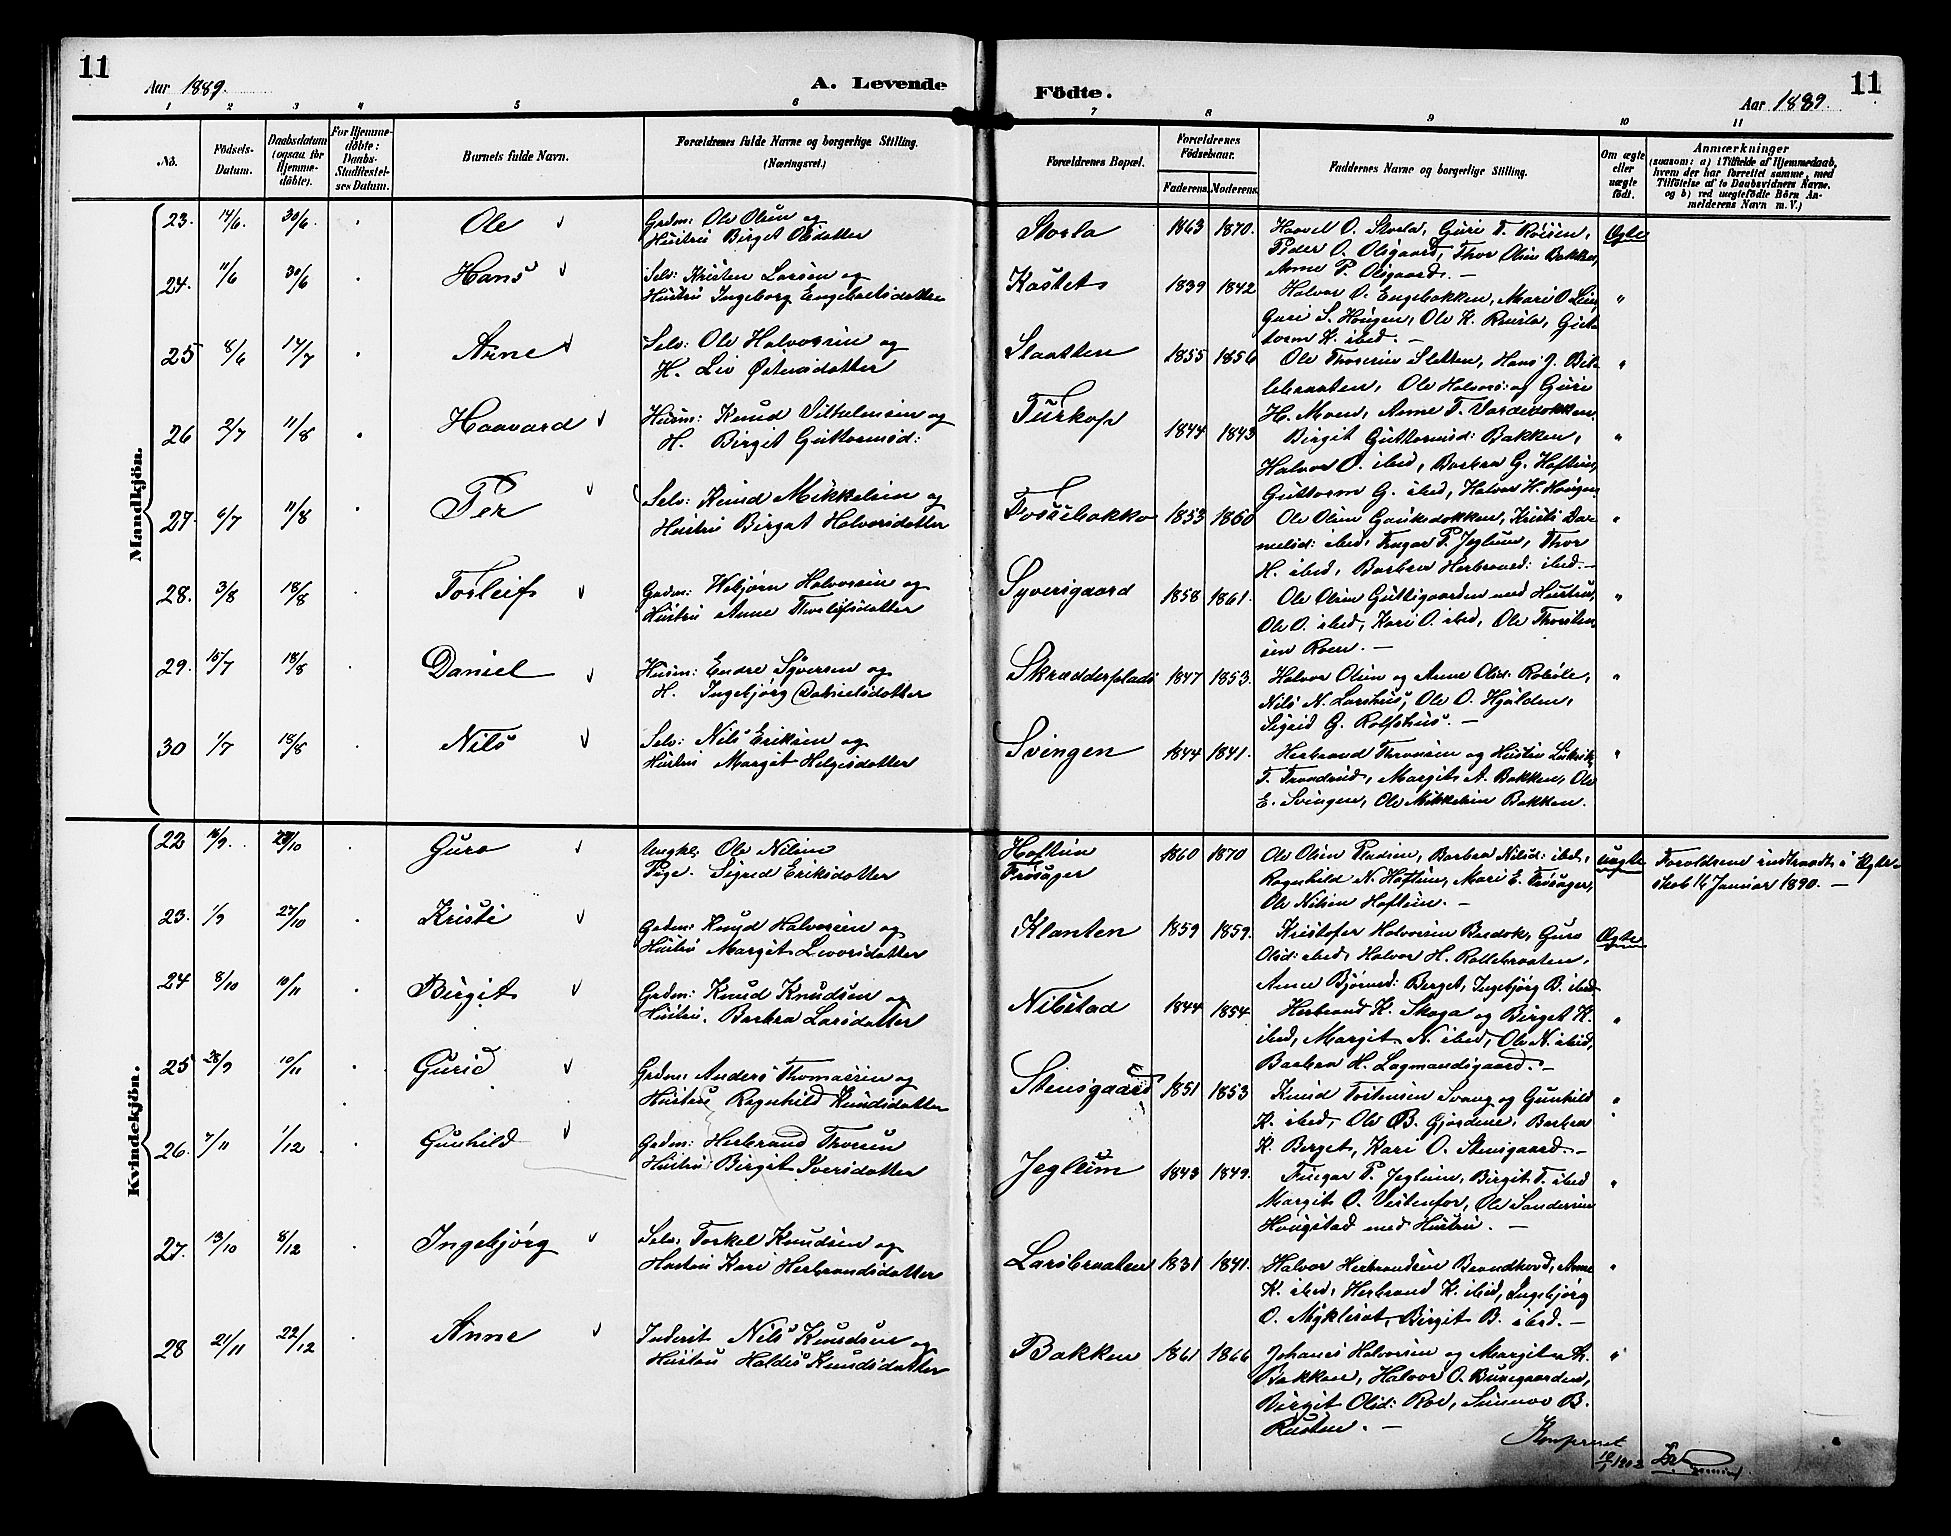 11
Aar 1889.
A. Levende
Födte.
Aar 1889.
11
1 2 3 4 5 6 7 8 9 10 11
No.
Födsels-Datum.
Daabsdatum (ogsaa for Hjemme-döbte).
For Hjemme-döbte: Daabs-Stadfæstel-ses Datum.
Barnets fulde Navn.
Forældrenes fulde Navne og borgerlige Stilling. (Næringsvei.)
Forældrenes Bopæl.
Forældrenes Födselsaar.
Faderens. Moderens.
Faddernes Navne og borgerlige Stilling.
Om ægte eller uægte födt.
Anmærkninger
(saasom: a) i Tilfælde af Hjemmedaab,
hvem der har forrettet samme, med
Tilföielse af to Daabsvidners Navne,
og b) ved uægtefödte Börn An-
melderens Navn m. V.)
Mandkjön.
23. 14/6. 30/6. Ole
Grdm: Ole Olsen og
Hustru Birget Olsdatter
Storla 1863 1870.
Haavel O. Storla, Guri T. Roisen,
Peder O. Olsgaard, Thor Olsen Bakken,
Anne P. Olsgaard. —
Ægte
24. 11/6 30/6 Hans
Selv: Kristen Larsen og
Hustru Ingeborg Engebretsdatter
Kastet 1839 1842
Halvor O. Engebakken, Mari O.
Guri S. Hougen, Ole K. Ruusla, Gut-
torm K. ibed. —
"
25 8/6 14/7 Arne
Selv: Ole Halvorsen og
H. Liv Østensdatter
Slaatten 1855 1856
Ole Thorsen Sletten, Hans J. Bit-
lebraaten, Ole Halvors: og Guri
H. Moen, Anne T. Vardedokken
"
26 2/7 11/8 Haavard
Husm: Knud Vilhelmsen og
H. Birgit Guttormsd:
Turkop 1844 1843
Birgit Guttormsd: Bakken,
Halvor O. ibed, Barbra G. Haftun,
Guttorm G. ibed, Halvor H. Hougen
"
27. 6/7 11/8 Per
Selv: Knud Mikkelsen og
Hustru Birgit Halvorsdatter
Fossebakko 1853 1860
Ole Olsen Gaukedokken, Kristi Da-
nielsd: ibed, Fingar P. Jeglum, Thor
H. ibed, Barbra Herbrands: ibed. —
"
28. 3/8 18/8 Torleif
Grdm: Vebjørn Halvorsen og
Hustru Anne Thorleifsdatter
Syversgaard 1858 1861.
Ole Olsen Guttegaarden med Hustru,
Ole O. ibed, Kari O. ibed, Ole Thorsten-
sen Roen. —
"
29. 15/7 18/8 Daniel
Husm: Endre Syversen og
H. Ingebjørg Danielsdatter
Skradderplads 1847 1853.
Halvor Olsen og Anne Olsd: Roløle,
Nils N. Larshus, Ole O. Hjalden,
Sigrid G. Rolfshus. —
"
30 1/7 18/8 Nils
Selv: Nils Eriksen og
Hustru Margit Helgesdatter
Svingen 1844 1841.
Herbrand Thronsen og Hustru
T. Trondrud, Margit A. Bakken, Ole
E. Svingen, Ole Mikkelsen Bakken.
"
Kvindekjön.
22 16/9. 20/10 Guro
Ungkl. Ole Nilsen
Pige. Sigrid Eriksdatter
Haftun
Frøsager
1860 1870
Ole Olsen Pladsen, Barbra Nilsd: ibed,
Ragnhild N. Haftun, Mari E. Frøsager,
Ole Nilsen Haftun. —
uægte
Foreldrene indtraadte i Ægte-
skab 14 Januar 1890. —
23. 1/9 27/10 Kristi
Grdm: Knud Halvorsen og
Hustru Margit Levorsdatter
Klanten 1859 1859.
Kristofer Halvorsen Berdok, Guro
Olsd: ibed, Halvor H. Rallebraaten,
Anne Bjørnsd: Berget, Ingebjørg B. ibed
Ægte
24 8/10 10/11 Birgit
Grdm: Knud Knudsen og
Hustru. Barbra Larsdatter
Nilsstad 1844 1854.
Herbrand K. Skaga og Birget K.
ibed, Margit N. ibed, Ole N. ibid,
Barbra H. Lagmandsgaard. —
"
25 28/9 10/11 Gurid
Grdm: Anders Thomassen og
Hustru Ragnhild Knudsdatter
Stensgaard 1851 1853
Knud Tostensen Svang og Gunhild
K. ibed, Ole B. Gjordene, Barbra
K. Berget, Kari O. Stensgaard. —
"
26. 7/11 1/12 Gunhild
Grdm: Herbrand Thorsen
Hustru Birgit Iversdatter
Jeglum 1843 1849.
Fingar P. Jeglum, Birgit T. ibed
Margit O. Vestenfor, Ole Sandersen
Hougstad med Hustru. —
"
27. 13/10 8/12 Ingebjørg
Selv: Torkel Knudsen og
Hustru Kari Herbrandsdatter
Larsbraaten 1831 1841.
Halvor Herbrandsen Brandhovd, Anne
K. ibed, Herbrand K. ibid, Ingebjørg
O. Myklesat, Birgit B. ibed. —
"
28 21/11 22/12 Anne
Inderst Nils Knudsen og
Hustru Haldis Knudsdatter
Bakken 1861 1866
Johanes Halvorsen og Margit A.
Bakken, Halvor O. Brunegaarden,
Birgit Olsd: Roe, Sunnov B.
Rusten. —
"
Konfereret
10/1 1902